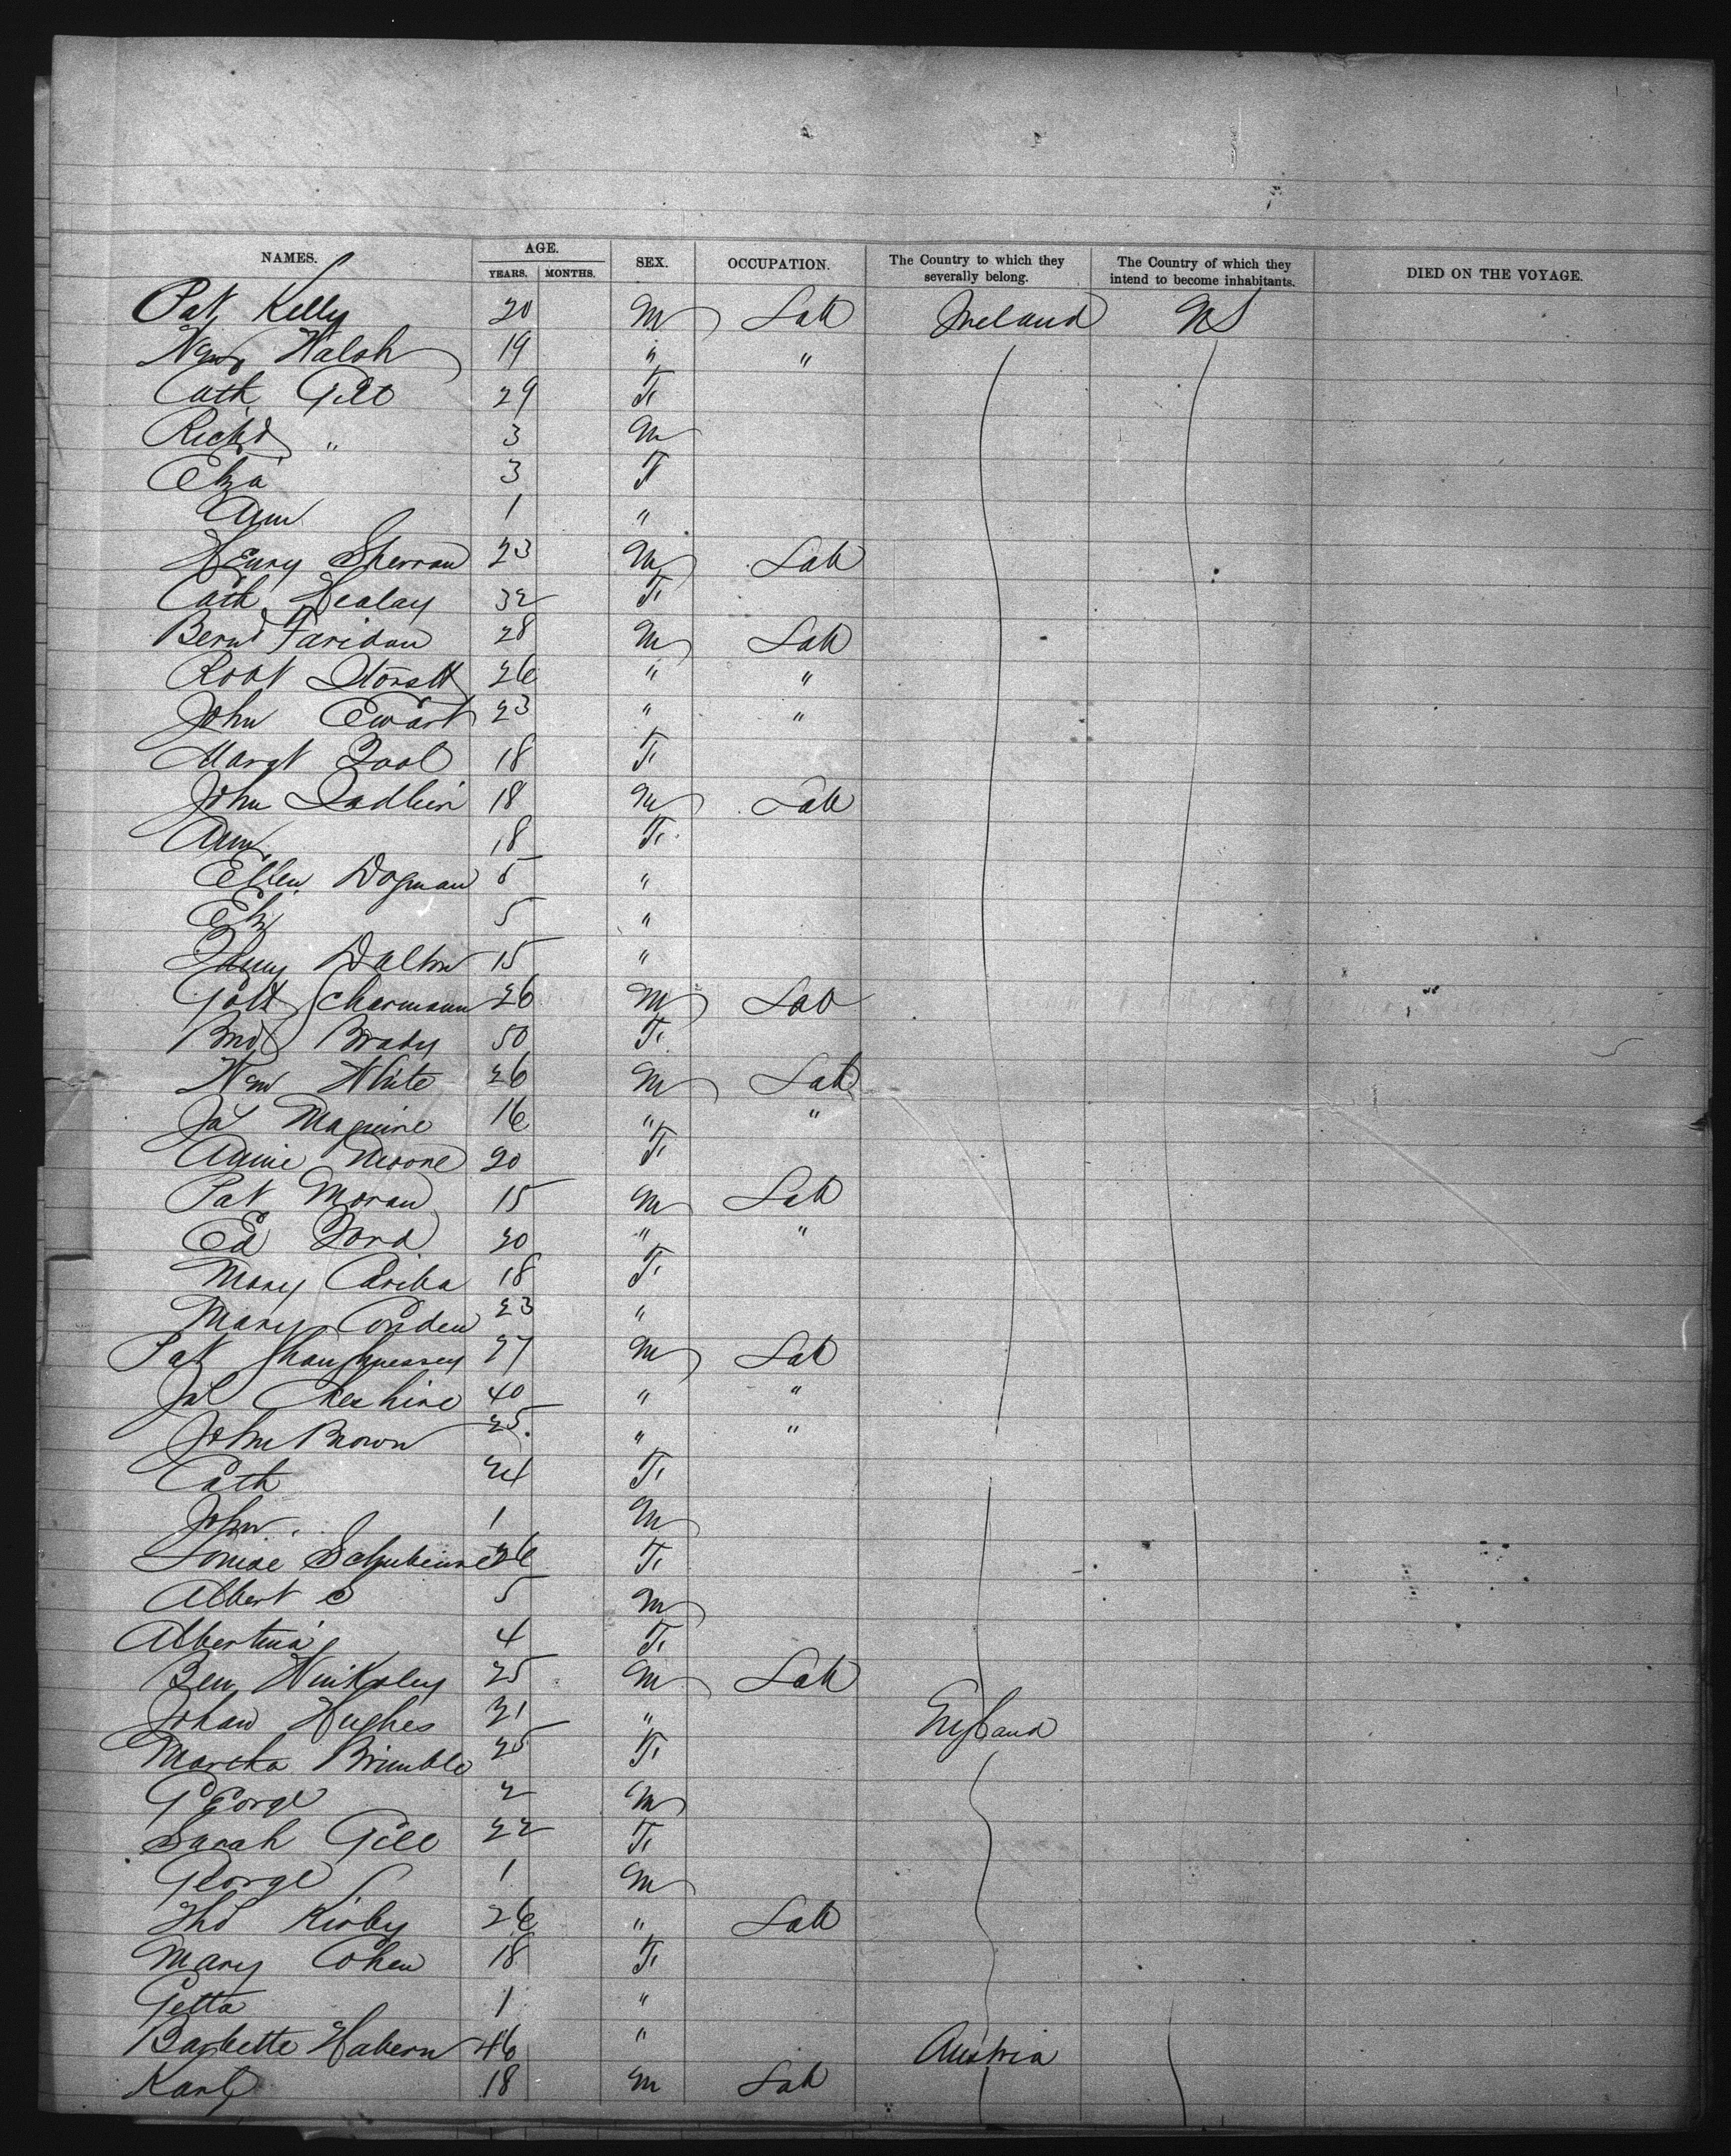 NAMES. AGE. YEARS. MONTHS. SEX. OCCUPATION. The Country to which they severally belong. The Country of which they intend to become inhabitants. DIED ON THE VOYAGE.
Pat Kelly 20 M Lab Ireland US
Wm Walsh 19 " "
Cath Gill 29 F
Richd " 3 M
Eliza 3 F
Ann 1 "
Henry Sherran 23 M Lab
Cath Healay 32 F
Bernd Faridan 28 M Lab
Robt 26 " "
John Ewart 23 " "
Margt Fool 18 F
John 18 M Lab
Ann 18 F
Ellen Dogman 5 "
Eliz 5 "
Fanny Dalton 15 "
Gott Scharmann 26 M Lab
Brid Brady 50 F
Wm White 26 M Lab
Jas Maguire 16 " "
Annie Moore 20 F
Pat Moran 15 M Lab
Ed Ford 20 " "
Mary 18 F
Mary Conden 23 "
Pat Shaughnessey 27 M Lab
Jas Cheshire 40 " "
John Brown 25 " "
Cath 24 F
John 1 M
Louise 26 F
Albert S 5 M
Albertina 4 F
Ben Winksley 25 M Lab
Johan Hughes 21 " England
Martha Brimble 25 F
George 2 M
Sarah Gill 22 F
George 1 M
Tho Kirby 26 " Lab
Mary Cohen 18 F
Getta 1 "
Barbette Habern 46 " Austria
Karl 18 M Lab